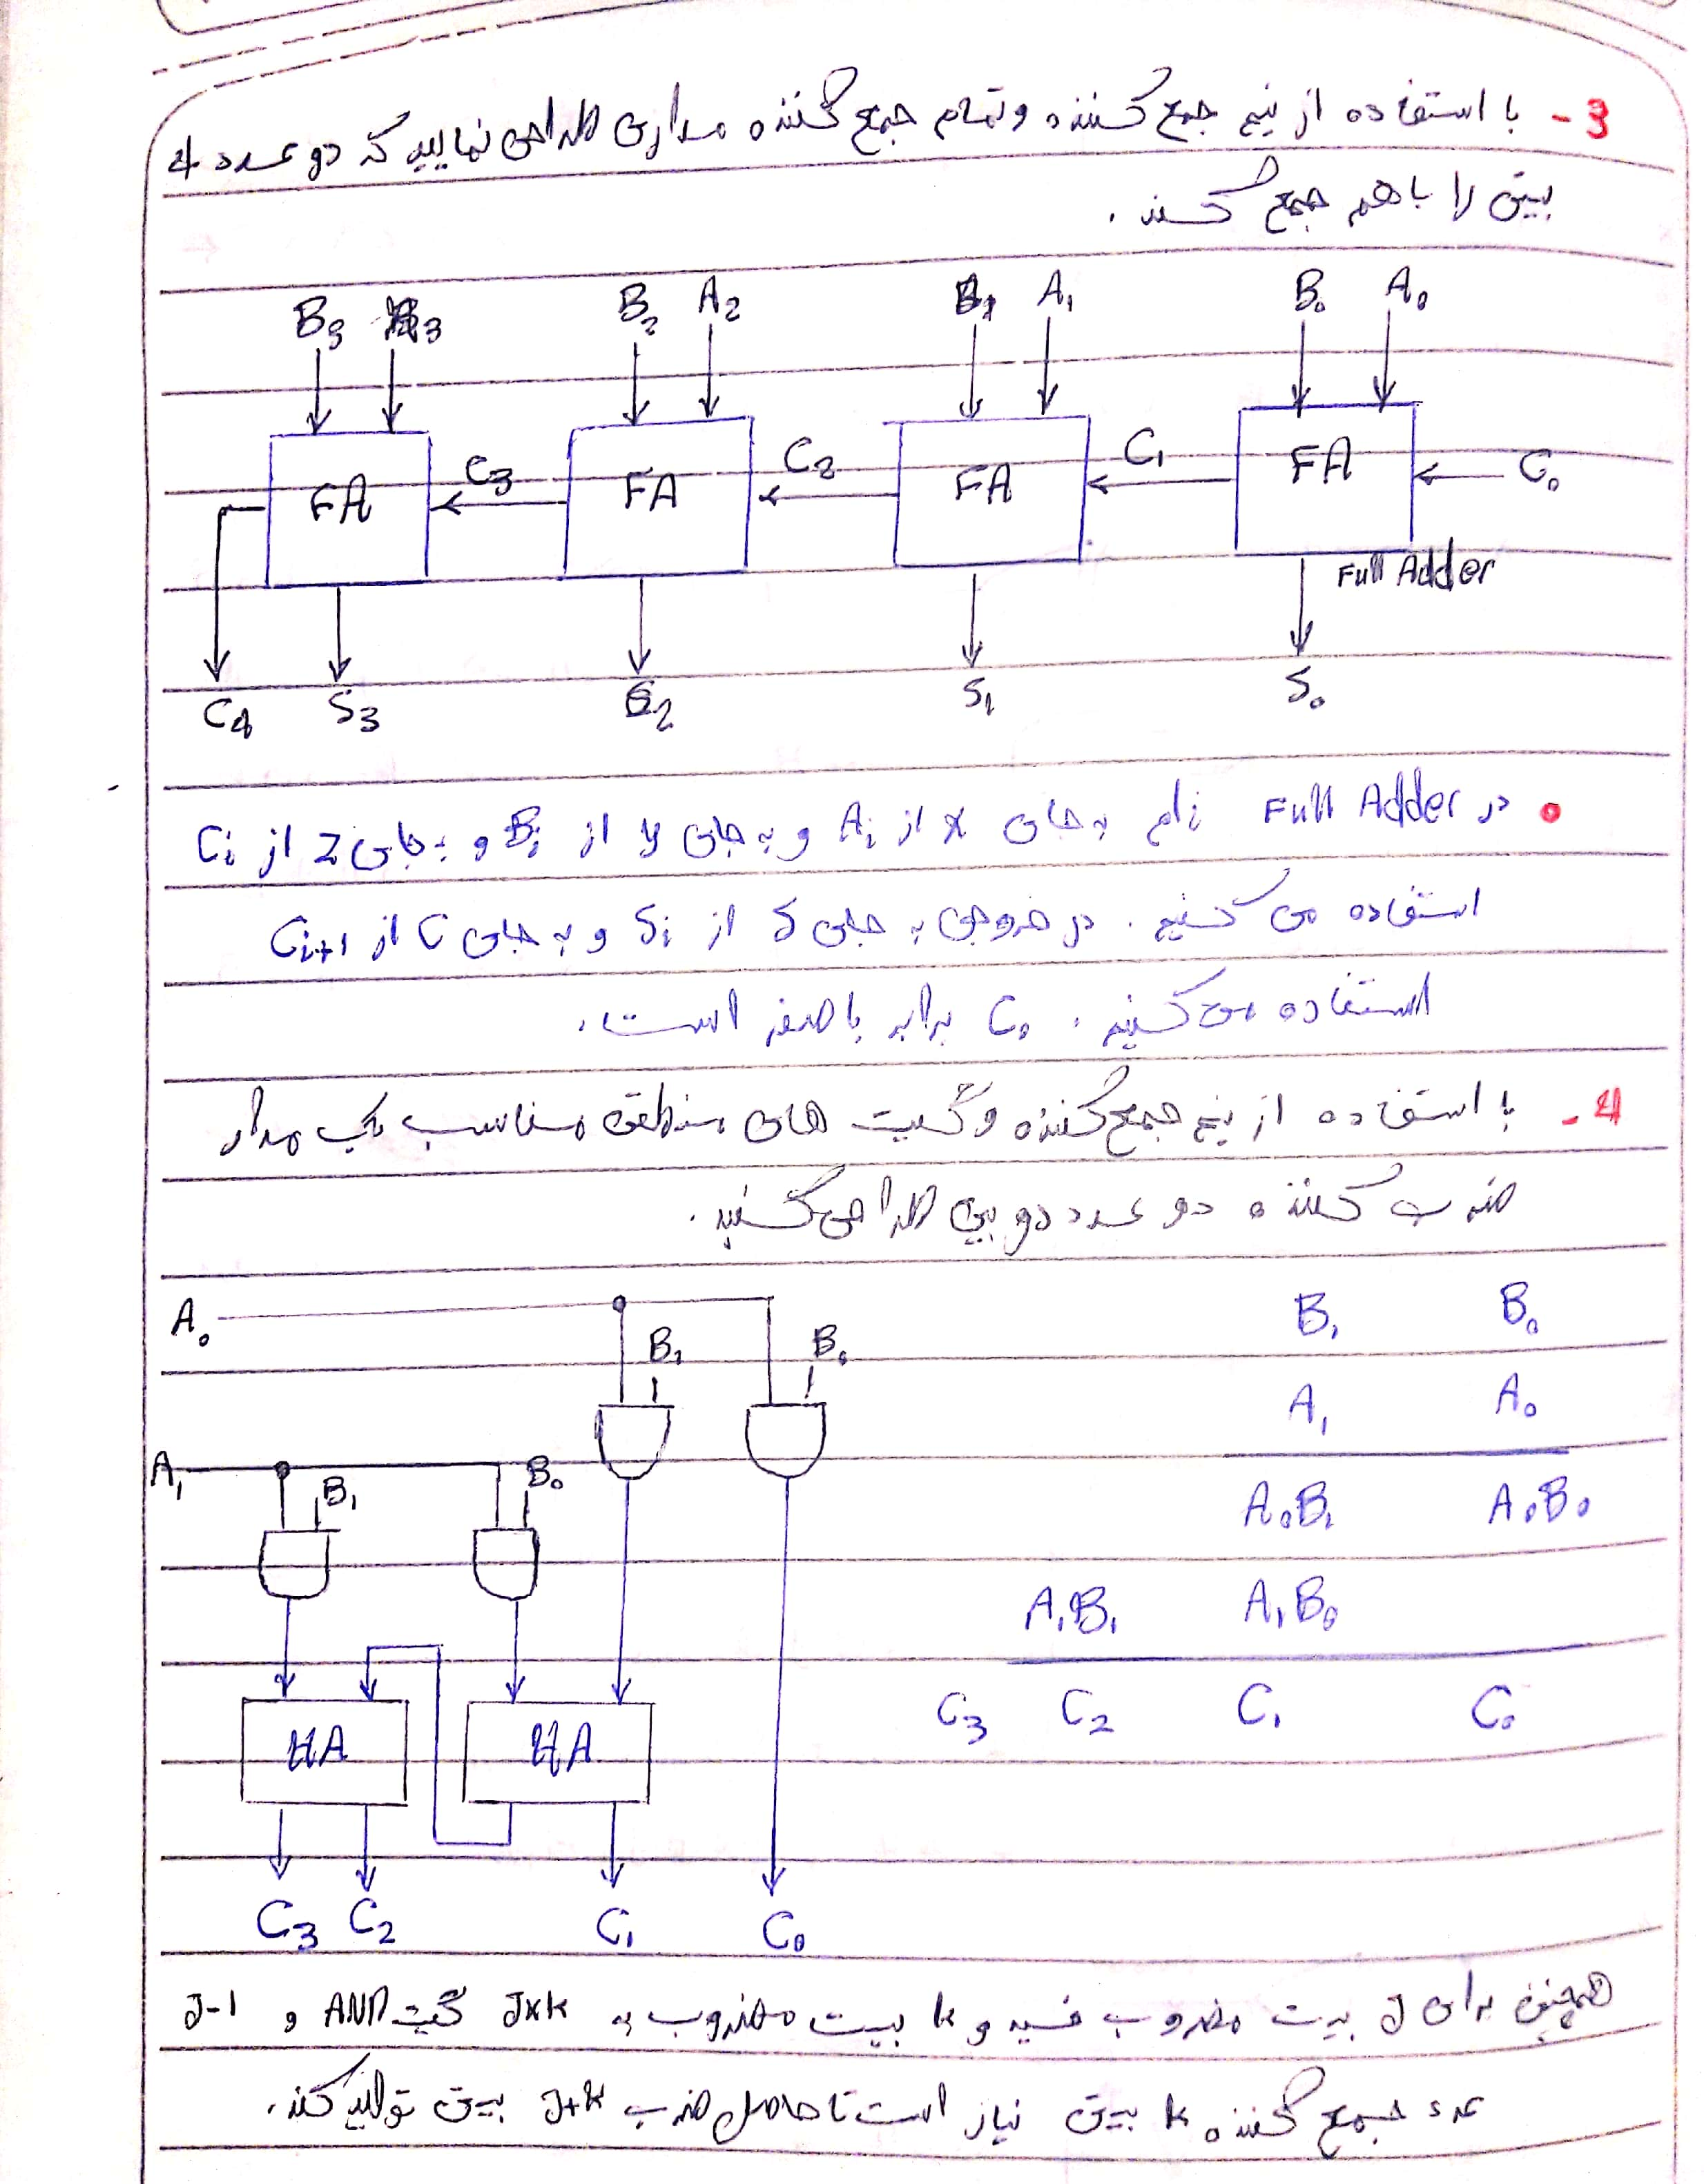 3- با استفاده از نیم جمع کننده و تمام جمع کننده مداری طراحی نمایید که دو عدد 4
بیتی را با هم جمع کند.
B3 A3 B2 A2 B1 A1 B0 A0
FA C3 FA C2 FA C1 FA C0
Full Adder
C4 S3 S2 S1 S0
در Full Adder i ام به جای x از Ai و به جای y از Bi و به جای z از Ci
استفاده می کنیم. در خروجی به جای S از Si و به جای C از Ci+1
استفاده می کنیم. C0 برابر با صفر است.
4- با استفاده از نیم جمع کننده و گیت های منطقی مناسب یک مدار
ضرب کننده دو عدد دو بیتی طراحی کنید.
A0 B1 B0
A1 B1 B0
HA HA
C3 C2 C1 C0
B1 B0
A1 A0
A0B1 A0B0
A1B1 A1B0
C3 C2 C1 C0
همچنین برای J بیت مضروب فیه و k بیت مضروب به J×k گیت AND و J-1
عدد جمع کننده k بیتی نیاز است تا حاصل ضرب J+k بیتی تولید کند.